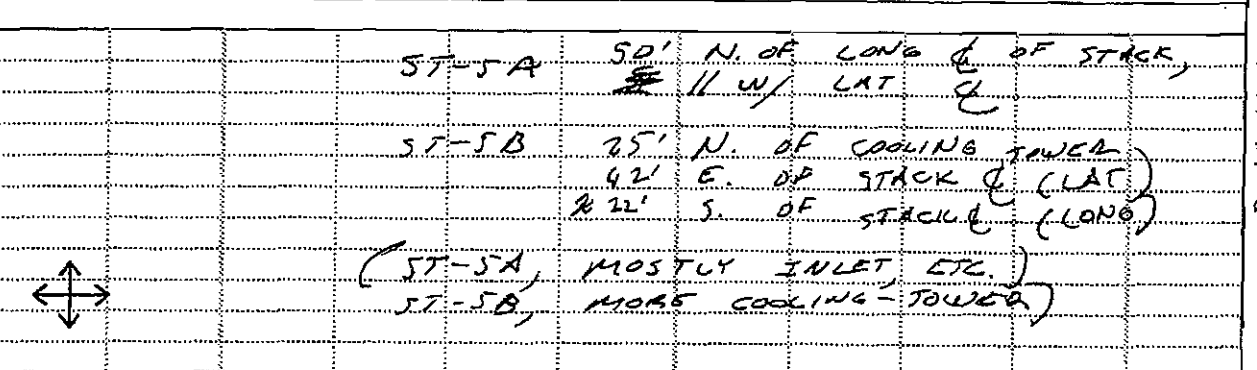 ST-5A 50' N. OF LONG ℄ OF STACK,
// W/ LAT ℄
ST-5B 25' N. OF COOLING TOWER
42' E. OF STACK ℄ (LAT)
22' S. OF STACK ℄ (LONG)
(ST-5A, MOSTLY INLET, ETC.)
ST-5B, MORE COOLING-TOWER)